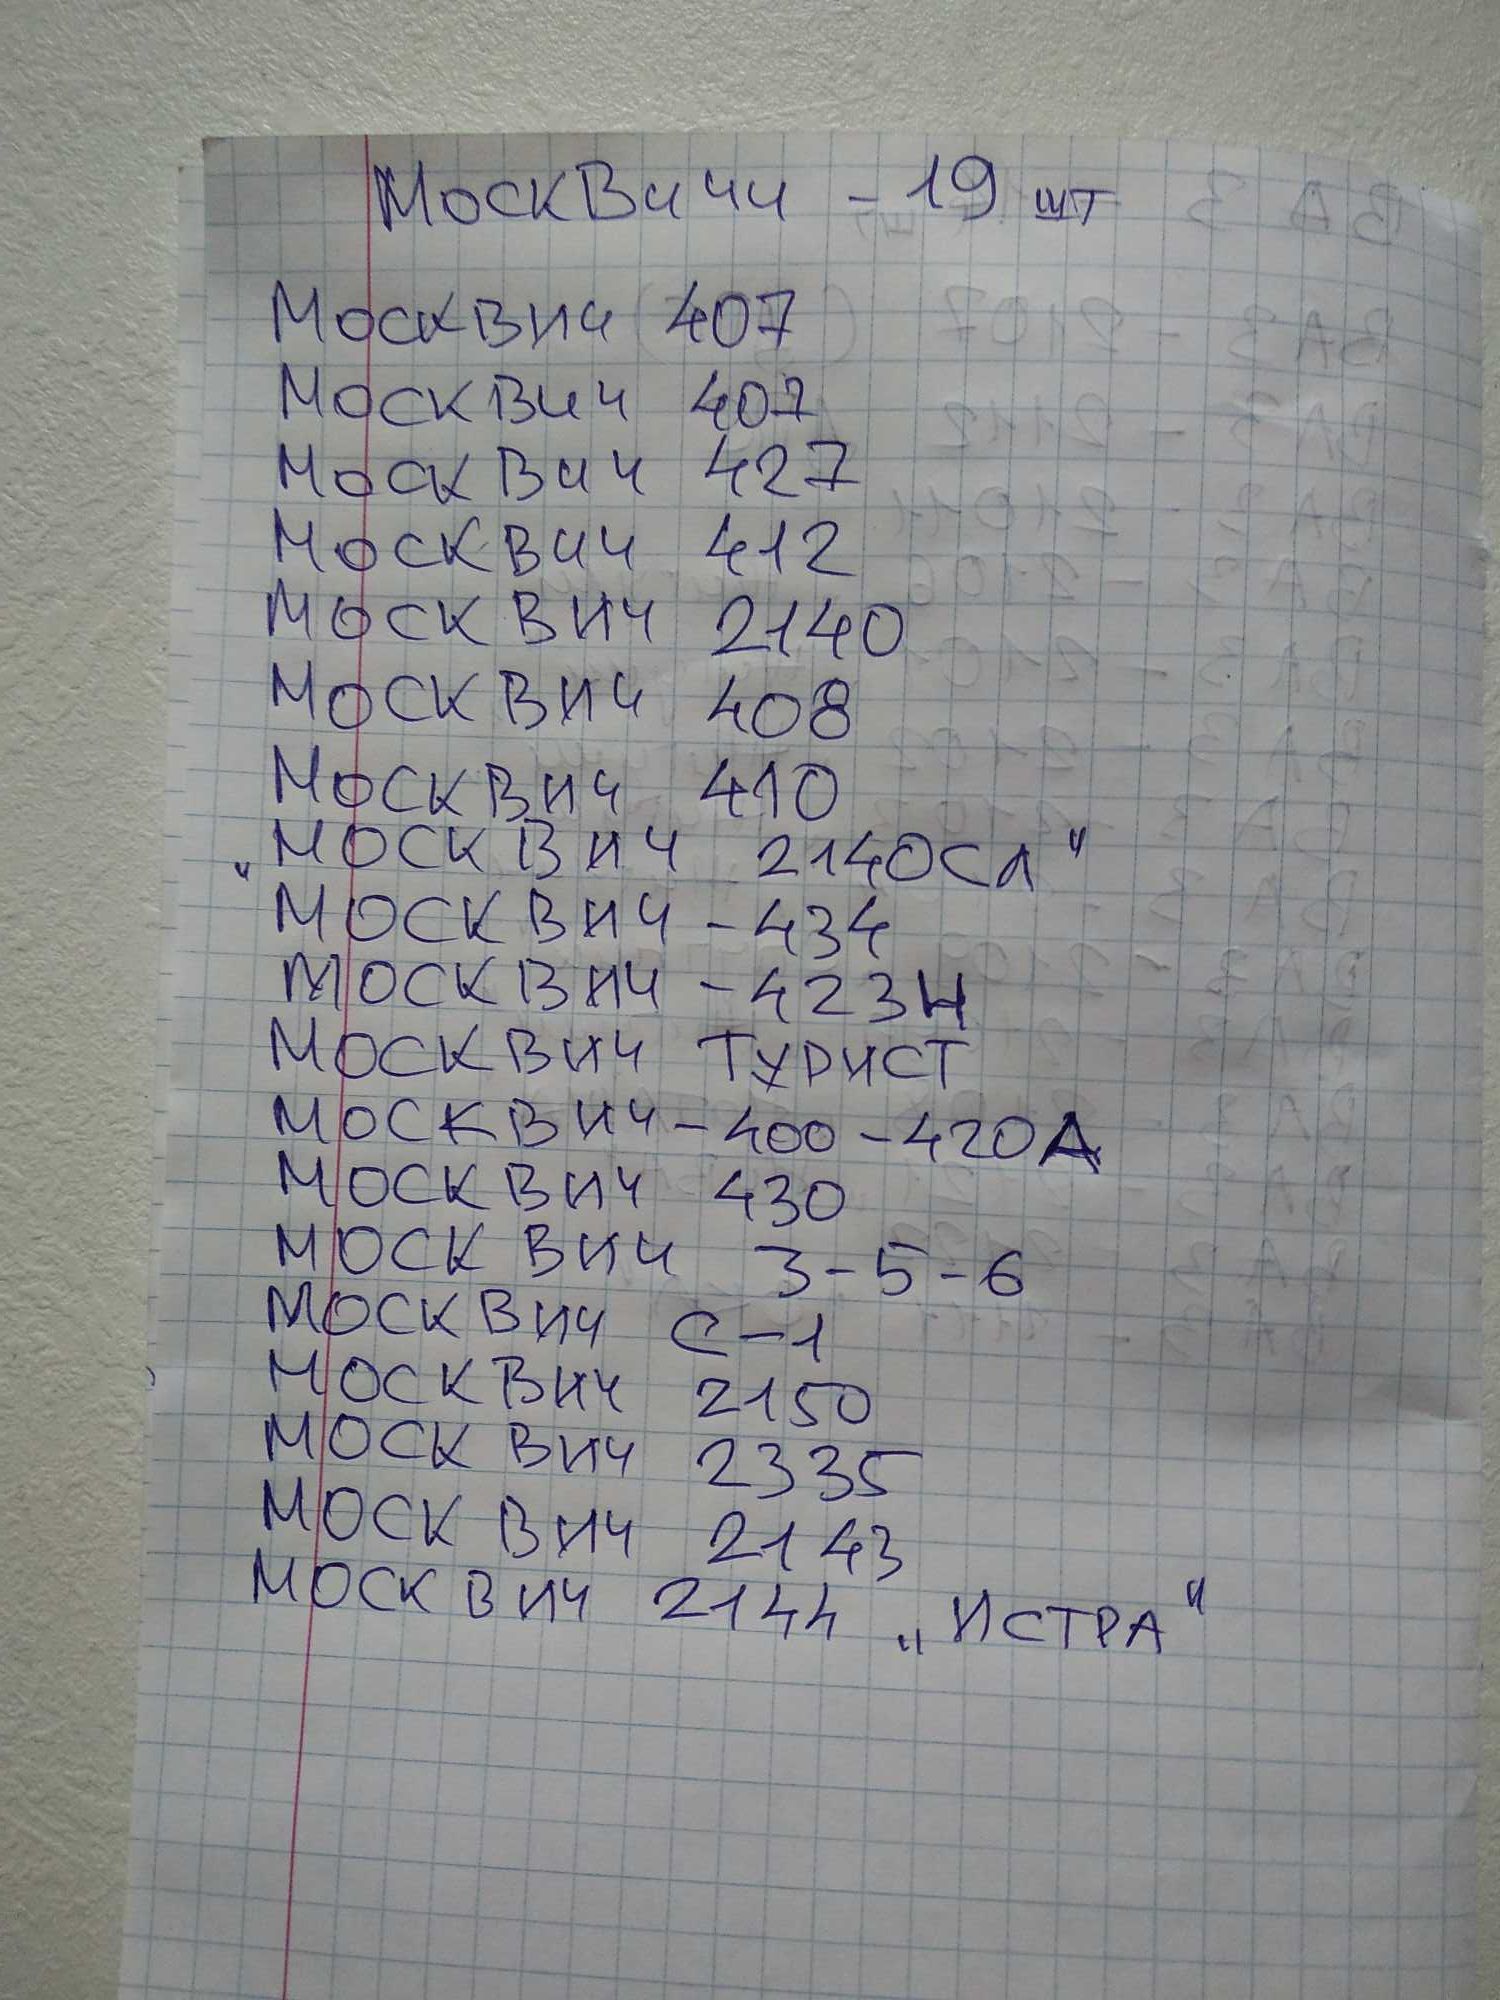 Москвичи - 19 шт
Москвич 407
Москвич 407
Москвич 427
Москвич 412
Москвич 2140
Москвич 408
Москвич 410
„Москвич 2140СЛ"
Москвич - 434
Москвич - 423Н
Москвич ТУРИСТ
Москвич - 400 - 420А
Москвич 430
Москвич 3-5-6
Москвич С-1
Москвич 2150
Москвич 2335
Москвич 2143
Москвич 2144 „ИСТРА"